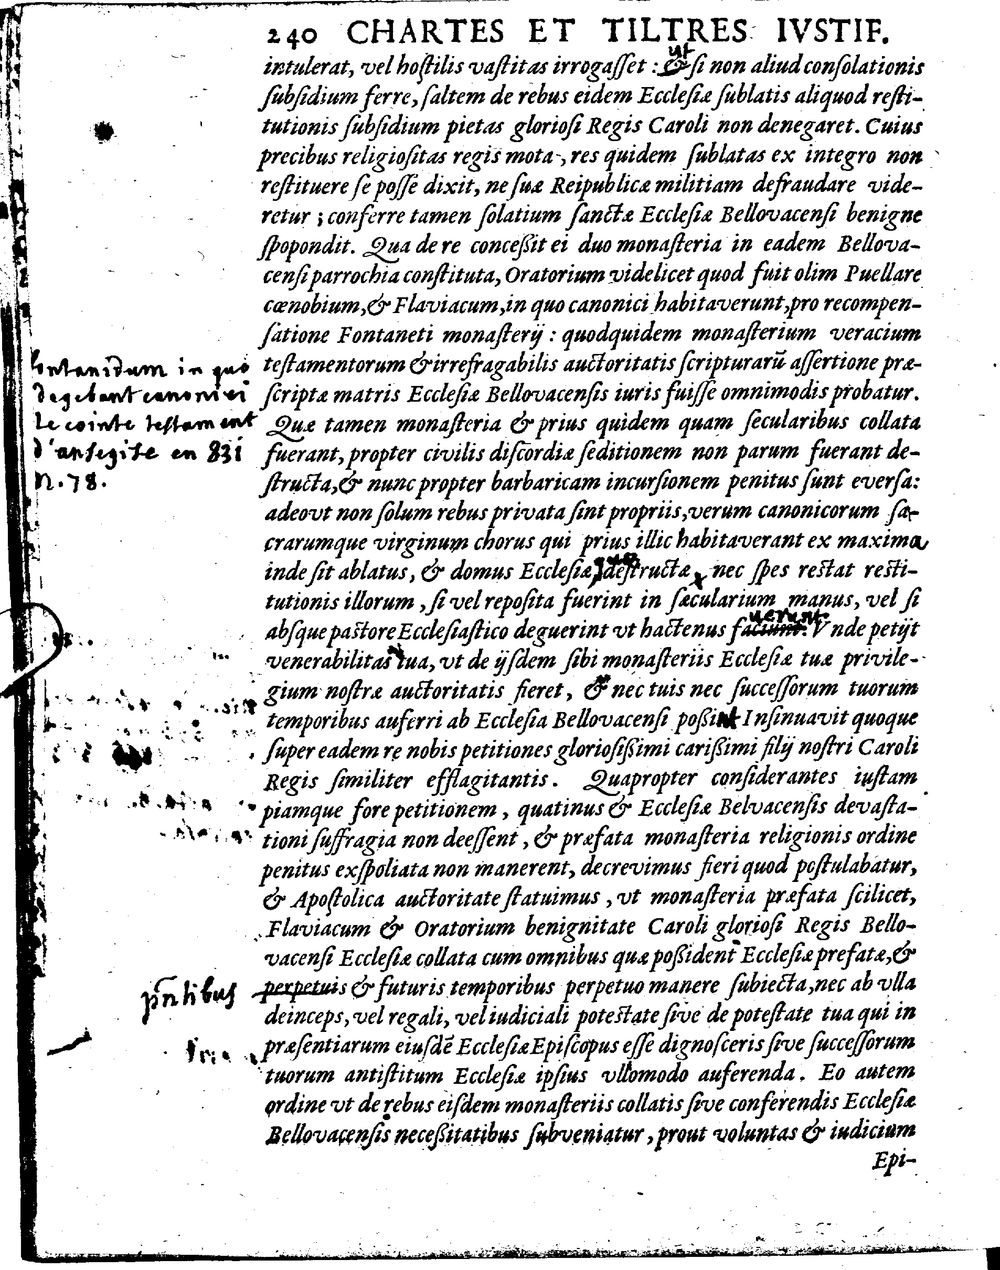 240 CHARTES ET TILTRES IVSTIF.
ut
intulerat, vel hostilis vastitas irrogasset : & si non aliud consolationis
subsidium ferre, saltem de rebus eidem Ecclesiæ sublatis aliquod resti-
tutionis subsidium pietas gloriosi Regis Caroli non denegaret. Cuius
precibus religiositas regis mota, res quidem sublatas ex integro non
restituere se posse dixit, ne suæ Reipublicæ militiam defraudare vide-
retur ; conferre tamen solatium sanctæ Ecclesiæ Bellovacensi benigne
spopondit. Qua de re conceßit ei duo monasteria in eadem Bellova-
censi parrochia constituta, Oratorium videlicet quod fuit olim Puellare
cœnobium, & Flaviacum, in quo canonici habitaverunt, pro recompen-
satione Fontaneti monasterij : quodquidem monasterium veracium
testamentorum & irrefragabilis auctoritatis scripturarū assertione præ-
scriptæ matris Ecclesiæ Bellovacensis iuris fuisse omnimodis probatur.
Quæ tamen monasteria & prius quidem quam secularibus collata
fuerant, propter civilis discordiæ seditionem non parum fuerant de-
structa, & nunc propter barbaricam incursionem penitus sunt eversa:
adeovt non solum rebus privata sint propriis, verum canonicorum sa-
crarumque virginum chorus qui prius illic habitaverant ex maxima
inde sit ablatus, & domus Ecclesiæ destructæ, nec spes restat resti-
tutionis illorum, si vel reposita fuerint in sæcularium manus, vel si
uerunt
absque pastore Ecclesiastico deguerint vt hactenus faciunt. Vnde petijt
venerabilitas tua, vt de ijsdem sibi monasteriis Ecclesiæ tuæ privile-
gium nostræ auctoritatis fieret, & nec tuis nec successorum tuorum
temporibus auferri ab Ecclesia Bellovacensi poßint. Insinuavit quoque
super eadem re nobis petitiones gloriosißimi carißimi filij nostri Caroli
Regis similiter efflagitantis. Quapropter considerantes iustam
piamque fore petitionem, quatinus & Ecclesiæ Belvacensis devasta-
tioni suffragia non deessent, & præfata monasteria religionis ordine
penitus exspoliata non manerent, decrevimus fieri quod postulabatur,
& Apostolica auctoritate statuimus, vt monasteria præfata scilicet,
Flaviacum & Oratorium benignitate Caroli gloriosi Regis Bello-
vacensi Ecclesiæ collata cum omnibus quæ poßident Ecclesiæ prefatæ, &
perpetuis & futuris temporibus perpetuo manere subiecta, nec ab vlla
deinceps, vel regali, vel iudiciali potestate sive de potestate tua qui in
præsentiarum eiusdē Ecclesiæ Episcopus esse dignosceris sive successorum
tuorum antistitum Ecclesiæ ipsius vllomodo auferenda. Eo autem
ordine vt de rebus eisdem monasteriis collatis sive conferendis Ecclesiæ
Bellovacensis neceßitatibus subveniatur, prout voluntas & iudicium
Epi-
fontanidum in quo
degebant canonici
le cointe testament
d'ansegise en 831
n. 78.
pn̄tibus